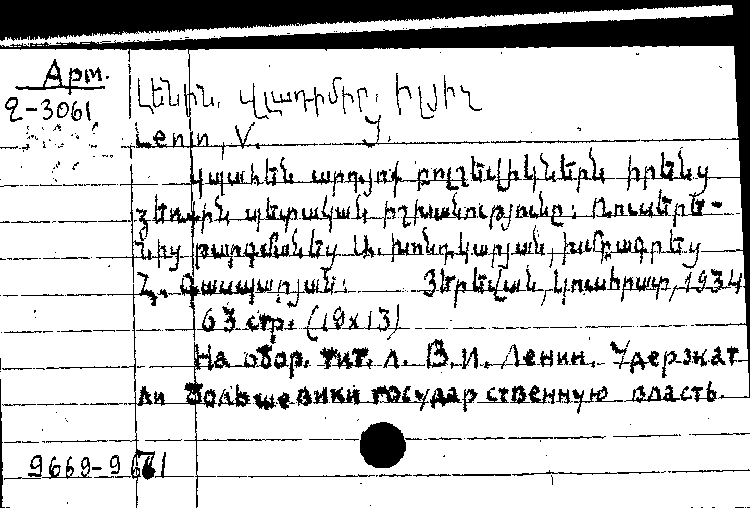 Арм.
2-3061
Լենին, Վլադիմիր, Իլյիչ
Lenin, V. J.
կպահեն արդյոք բոլշեվիկներն իրենց
ձեռքին պետական իշխանությունը: Ռուսերե-
նից թարգմանեց Ա. խոնդկարյան, խմբագրեց
Հ. Գասպարյան: Յերեվան, կուսհրատ, 1934
63 стр. (19x13)
На обор. тит. л. В.И. Ленин. Удержат
ли большевики государственную власть.
9669-961